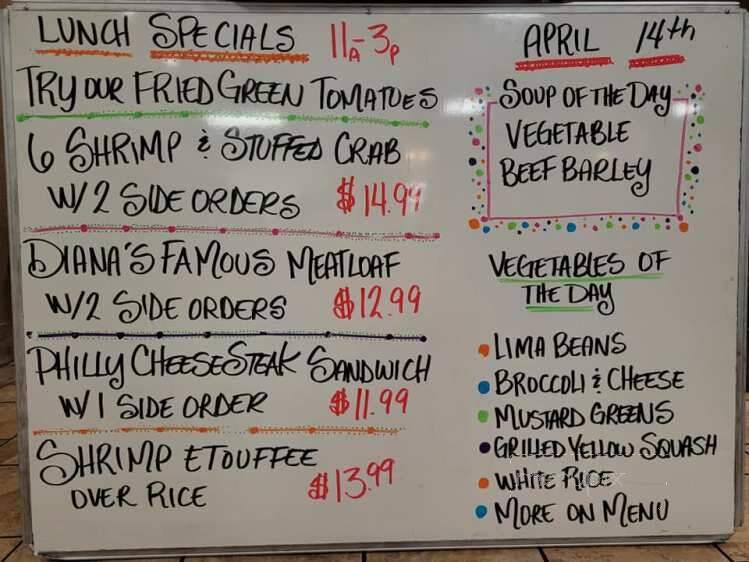 LUNCH SPECIALS 11A-3P
TRY OUR FRIED GREEN TOMATOES
6 SHRIMP & STUFFED CRAB
W/ 2 SIDE ORDERS $14.99
DIANA'S FAMOUS MEATLOAF
W/2 SIDE ORDERS $12.99
PHILLY CHEESESTEAK SANDWICH
W/ 1 SIDE ORDER $11.99
SHRIMP ETOUFFEE
OVER RICE $13.99
APRIL 14th
SOUP OF THE DAY
VEGETABLE
BEEF BARLEY
VEGETABLES OF
THE DAY
LIMA BEANS
BROCCOLI & CHEESE
MUSTARD GREENS
GRILLED YELLOW SQUASH
WHITE RICE
MORE ON MENU